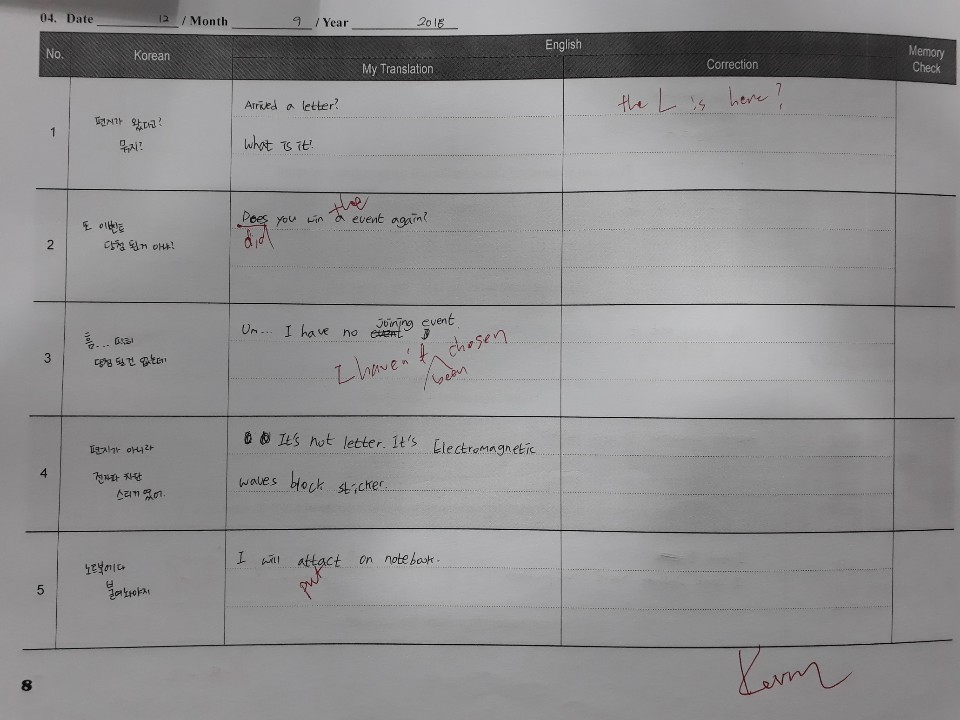 04. Date 12 / Month 9 / Year 2018
No. Korean English Memory Check
My Translation Correction
1
편지가 왔다고?
뭐지?
Arrived a letter?
What is it?
the L is here?
2
또 이벤트
당첨 된거 아냐?
Does you win a event again?
did
the
3
흠...
당첨 된건 없는데
Um... I have no joining event
I haven't been chosen
4
편지가 아니라
전자파 차단
스티커 였어.
It's not letter. It's Electromagnetic
waves block sticker.
5
노트북에다
붙여놔야지
I will attact on notebook.
put
Kevin
8